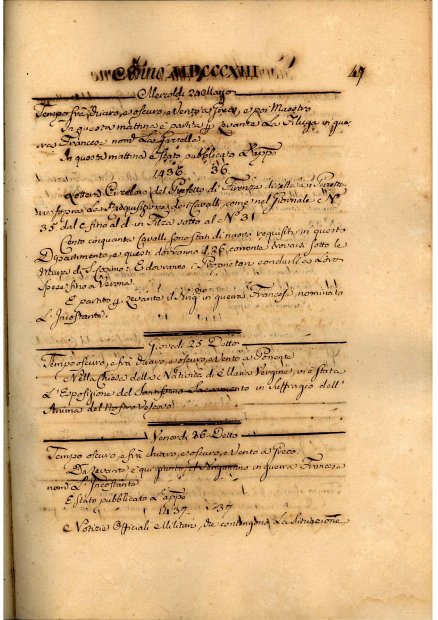 Anno MDCCCXIII 47
Mercoldì 24 Maggo
Tempo frà chiaro, e oscuro, e Vento a Greco, e poi Maestro
In questa mattina è partita p Levante La Filuga in guer
ra Francese nomta La
In questa mattina è Stato pubblicato L'app
1436. 36.
Lettera Circolare del Prefetto di Firenze diretta ai
sopra La Requisizione dei Cavalli, come nel Giornale C N°
35 dal C. fino al d in Filza sotto al C N° 31
Cento cinquanta Cavalli sono Stati di nuovo requisiti in questo
Dipartimento, e questi dovranno il 26 corrente trovarsi sotto le
di S. Cosimo: E dovranno i Proprietari condurli a Loro
Spese fino a Verona
È partito p Levante il in guerra Francese nominato
L'Incostante.
Giovedì 25 Detto
Tempo oscuro, e frà chiaro, e oscuro, e Vento a Ponente
Nella Chiesa della Natività di Maria Vergine, vi è stata
L'Esposizione del Santissimo Sacramento in Suffragio dell'
Anima del Nostro Vescovo
Venerdì 26 Detto
Tempo oscuro, e frà chiaro, e oscuro, e Vento a Greco
Da Levante è qui giunto, il in guerra Francese
nomto L'Incostante
È stato pubblicato L'app
1437. 37
Notizie Officiali Militari, che contengono La Situazione